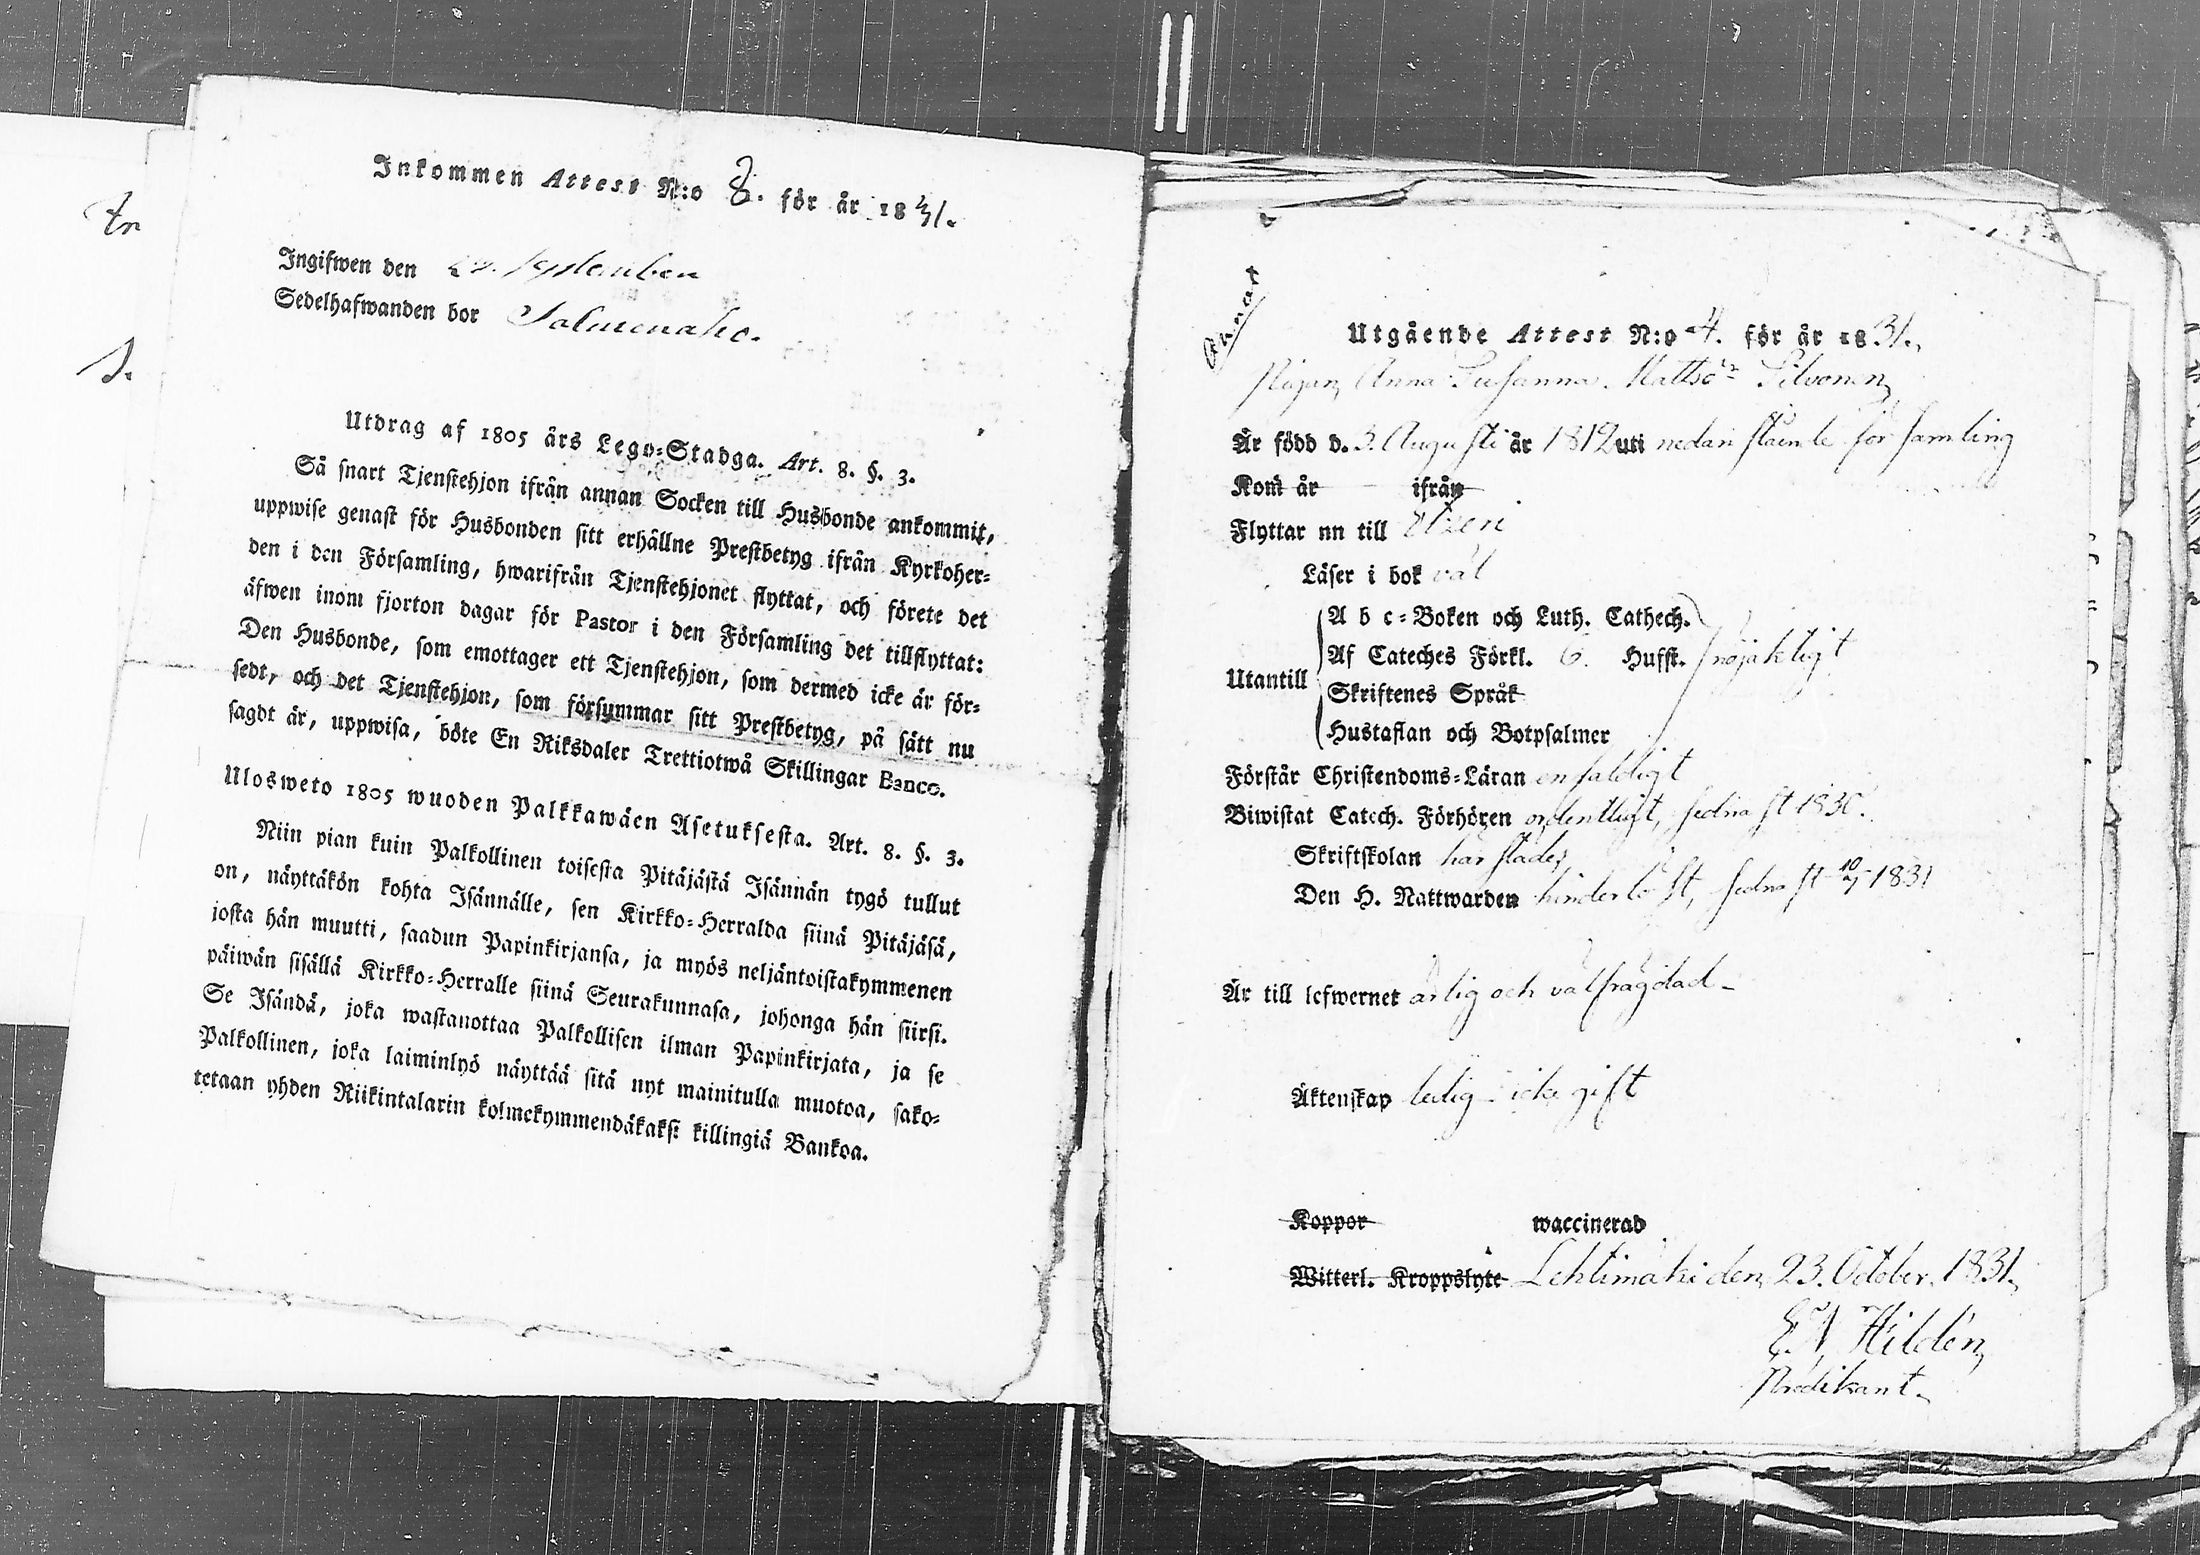 Inkommen Attest N:o 8. för år 1831.
Ingifwen den September
Sedelhafwanden bor Salmenaho.
Utdrag af 1805 års Lego-Stadga. Art. 8. §. 3.
Så snart Tjenstehjon ifrån annan Socken till Husbonde ankommit,
uppwise genast för Husbonden sitt erhållne Prestbetyg ifrån Kyrkoher-
den i den Församling, hwarifrån Tjenstehjonet flyttat, och förete det
äfwen inom fjorton dagar för Pastor i den Församling det tillflyttat:
Den Husbonde, som emottager ett Tjenstehjon, som dermed icke är för-
sedt, och det Tjenstehjon, som försummar sitt Prestbetyg, på sätt nu
sagdt är, uppwisa, böte En Riksdaler Trettiotwå Skillingar Banco.
Ulosweto 1805 wuoden Palkkawäen Asetuksesta. Art. 8. §. 3.
Niin pian kuin Palkollinen toisesta Pitäjästä Isännän tygö tullut
on, näyttäkön kohta Isännälle, sen Kirkko-Herralda siinä Pitäjäsä,
josta hän muutti, saadun Papinkirjansa, ja myös neljäntoistakymmenen
päiwän sisällä Kirkko-Herralle siinä Seurakunnasa, johonga hän siirsi.
Se Isändä, joka wastanottaa Palkollisen ilman Papinkirjata, ja se
Palkollinen, joka laiminlyö näyttää sitä nyt mainitulla muotoa, sako-
tetaan yhden Riikintalarin kolmekymmendäkaksi killingiä Bankoa.
Utgående Attest N:o 4. för år 1831.
Pigan Anna Susanna Mattsdr Silvonen
Är född d. 3. Augusti år 1812 uti nedanstående församling
Kom år ifrån
Flyttar nn till Etzeri
Läser i bok väl
A b c-Boken och Luth. Cathech.
Af Cateches Förkl. 6. Hufst. nöjaktigt
Utantill
Skriftenes Språk
Hustaflan och Botpsalmer
Förstår Christendoms-Läran enfaldigt
Biwistat Catech. Förhören ordentligt, sednast 1830.
Skriftskolan härstädes
Den H. Nattwarden hinderlöst, sednast 10/7 1831
Är till lefwernet ärlig och välfrägdad
Äktenskap ledig icke gift
Koppor waccinerad
Witterl. Kroppslyte Lehtimäki den 23. October 1831.
E N Hildén
Predikant.